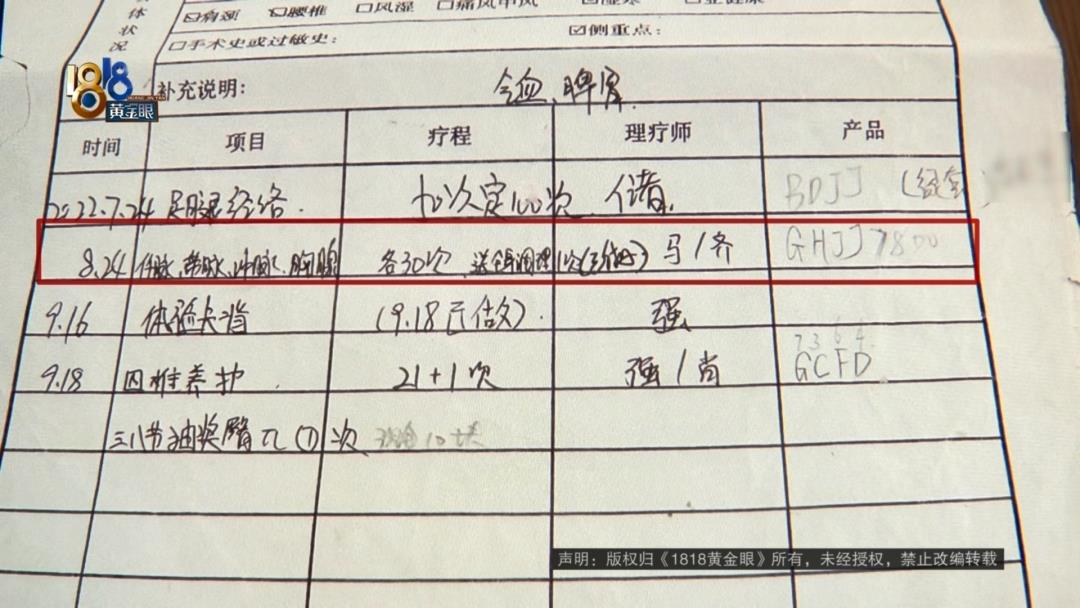 体
状
况
肩颈 ☑腰椎 □风湿 □痛风中风
□手术史或过敏史: ☑侧重点:
1818
黄金眼
补充说明: 脾胃
时间 项目 疗程 理疗师 产品
2022.7.24 足腿经络. 十次定100次 储 BDJJ
8.24 任脉、带脉、冲脉、胸腺 各30次 马/齐 GHJJ 7800
9.16 体验 (9.18已做). 强
7364
9.18 四维养护. 21+1次 强/肖 GCFD
三八节抽奖臀疗①次
声明:版权归《1818黄金眼》所有,未经授权,禁止改编转载